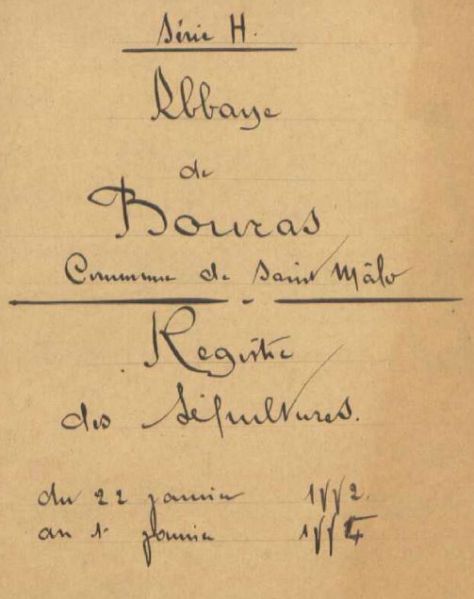 Série H.
Abbaye
de
Bouras
Commune de Saint Mâlo
Registre
des Sépultures.
du 22 janvier 1772.
au 1er janvier 1774